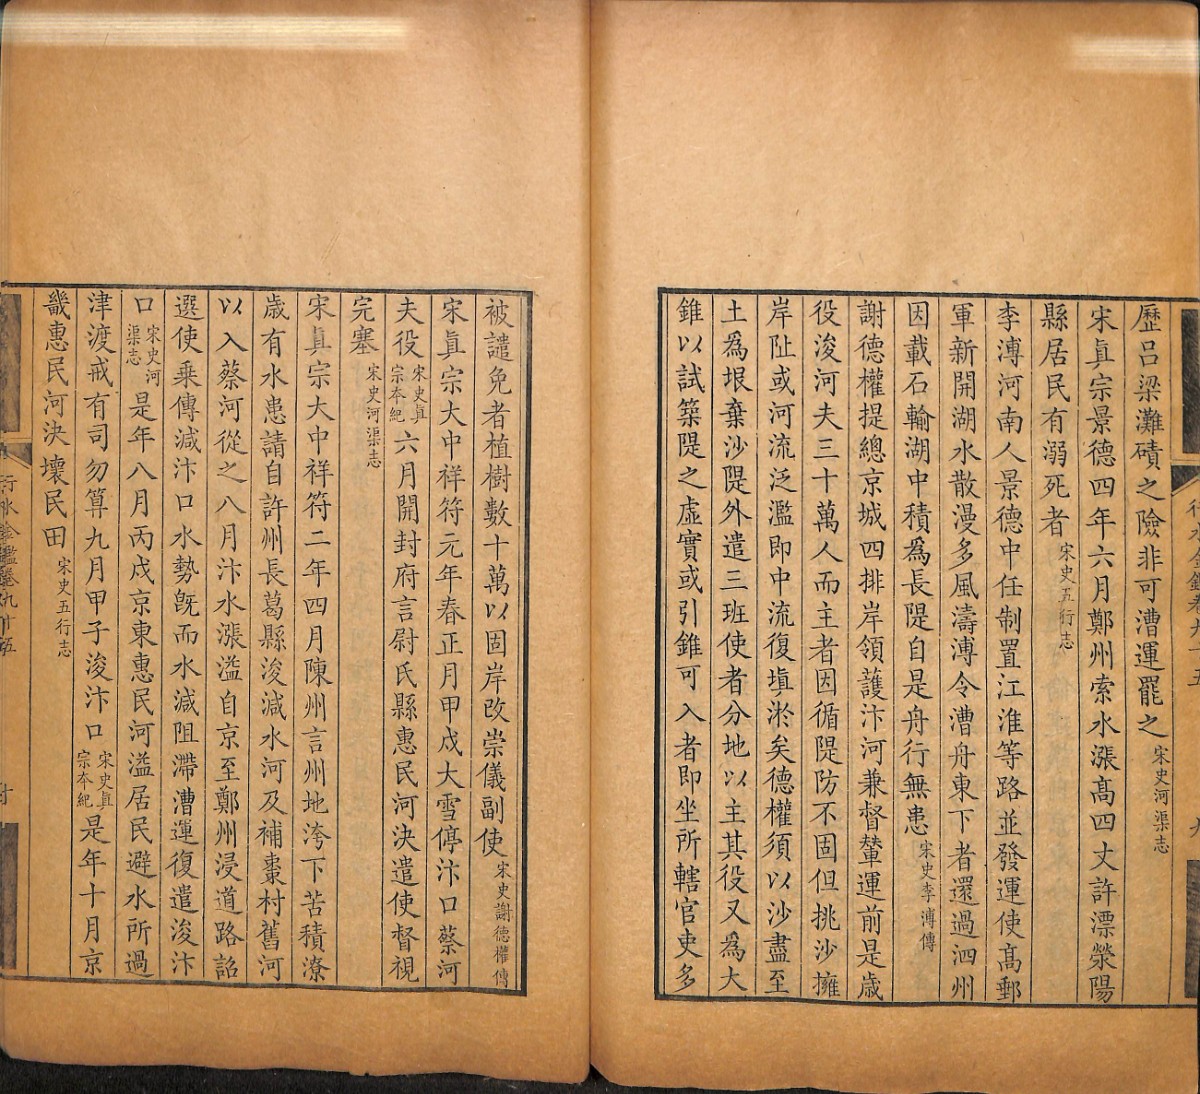 歷呂梁灘磧之險非可漕運罷之宋史河渠志
宋眞宗景德四年六月鄭州索水漲髙四丈許漂滎陽
縣居民有溺死者宋史五行志
李溥河南人景德中任制置江淮等路並發運使髙郵
軍新開湖水散漫多風濤溥令漕舟東下者還過泗州
因載石輸湖中積爲長隄自是舟行無患宋史李溥傳
謝德權提總京城四排岸領護汴河兼督輦運前是歲
役浚河夫三十萬人而主者因循隄防不固但挑沙擁
岸阯或河流泛濫即中流復塡淤矣德權須以沙盡至
土爲垠棄沙隄外遣三班使者分地以主其役又爲大
錐以試築隄之虛實或引錐可入者即坐所轄官吏多
被譴免者植樹數十萬以固岸改崇儀副使宋史謝德權傳
宋眞宗大中祥符元年春正月甲戍大雪停汴口蔡河
夫役宋史眞宗本紀六月開封府言尉氏縣惠民河決遣使督視
完塞宋史河渠志
宋眞宗大中祥符二年四月陳州言州地洿下苦積潦
歲有水患請自許州長葛縣浚減水河及補棗村舊河
以入蔡河從之八月汴水漲溢自京至鄭州浸道路詔
選使乘傳減汴口水勢旣而水減阻滯漕運復遣浚汴
口宋史河渠志是年八月丙戍京東惠民河溢居民避水所過
津渡戒有司勿算九月甲子浚汴口宋史眞宗本紀是年十月京
畿惠民河決壞民田宋史五行志